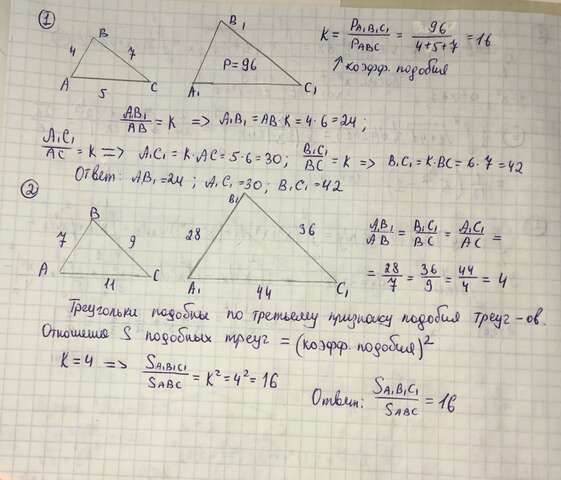 ①
B
4
7
A
5
C
B₁
P=96
A₁
C₁
K = P A₁B₁C₁ / P ABC = 96 / 4+5+7 = 16
↑ коэфф. подобия
A₁B₁ / AB = K => A₁B₁ = AB·K = 4·6 = 24;
A₁C₁ / AC = K => A₁C₁ = K·AC = 5·6 = 30; B₁C₁ / BC = K => B₁C₁ = K·BC = 6·7 = 42
Ответ: AB₁ = 24; A₁C₁ = 30; B₁C₁ = 42
②
B
7
9
A
11
C
B₁
28
36
A₁
44
C₁
A₁B₁ / AB = B₁C₁ / BC = A₁C₁ / AC =
= 28 / 7 = 36 / 9 = 44 / 4 = 4
Треугольки подобны по третьему признаку подобия треуг-ов.
Отношение S подобных треуг = (коэфф. подобия)²
K = 4 => S A₁B₁C₁ / S ABC = K² = 4² = 16
Ответ: S A₁B₁C₁ / S ABC = 16